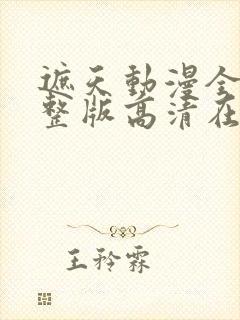 遮天動漫全
整版高清在
王矜霖